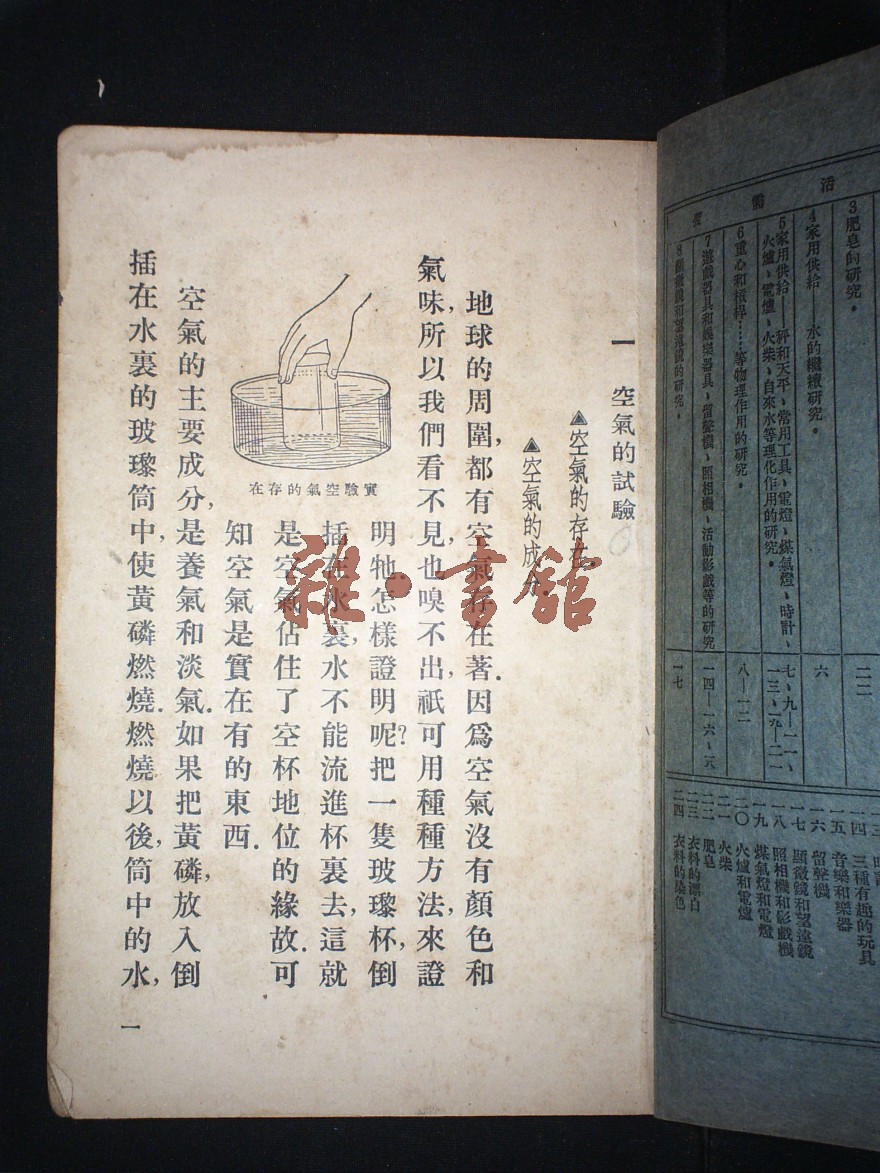 活需要
3 肥皂的研究。
二二
4 家用供給——水的繼續研究。
六
5 家用供給——秤和天平、常用工具、電燈、煤氣燈、時計、
火爐、電爐、火柴、自來水等理化作用的研究。
七、九—一一、
一三、一九—二一
6 重心和槓桿……等物理作用的研究。
八—一二
7 遊戲器具和娛樂器具、留聲機、照相機、活動影戲等的研究
一四—一六、一八
8 顯微鏡和望遠鏡的研究。
一七
一四 三種有趣的玩具
一五 音樂和樂器
一六 留聲機
一七 顯微鏡和望遠鏡
一八 照相機和影戲機
一九 煤氣燈和電燈
二〇 火爐和電爐
二一 火柴
二二 肥皂
二三 衣料的漂白
二四 衣料的染色
一 空氣的試驗
▲空氣的存在
▲空氣的成分
地球的周圍,都有空氣存在著.因爲空氣沒有顏色和
氣味,所以我們看不見,也嗅不出,祇可用種種方法,來證
明牠.怎樣證明呢?把一隻玻璨杯,倒
插在水裏,水不能流進杯裏去,這就
是空氣佔住了空杯地位的緣故.可
知空氣是實在有的東西.
實驗空氣的存在
空氣的主要成分,是養氣和淡氣.如果把黃磷,放入倒
插在水裏的玻璨筒中,使黃磷燃燒.燃燒以後,筒中的水,
一
雜·書館